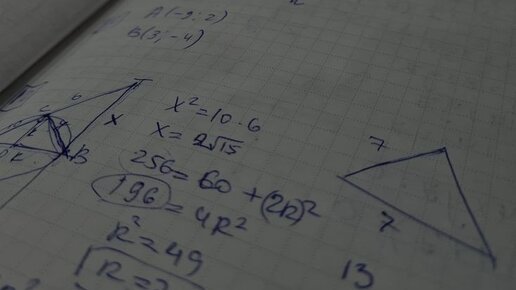 A(-9; 2)
B(3; -4)
C
6
x
B
x² = 10 · 6
x = 2√15
256 = 60 + (2R)²
196 = 4R²
R² = 49
R = 7
7
7
13